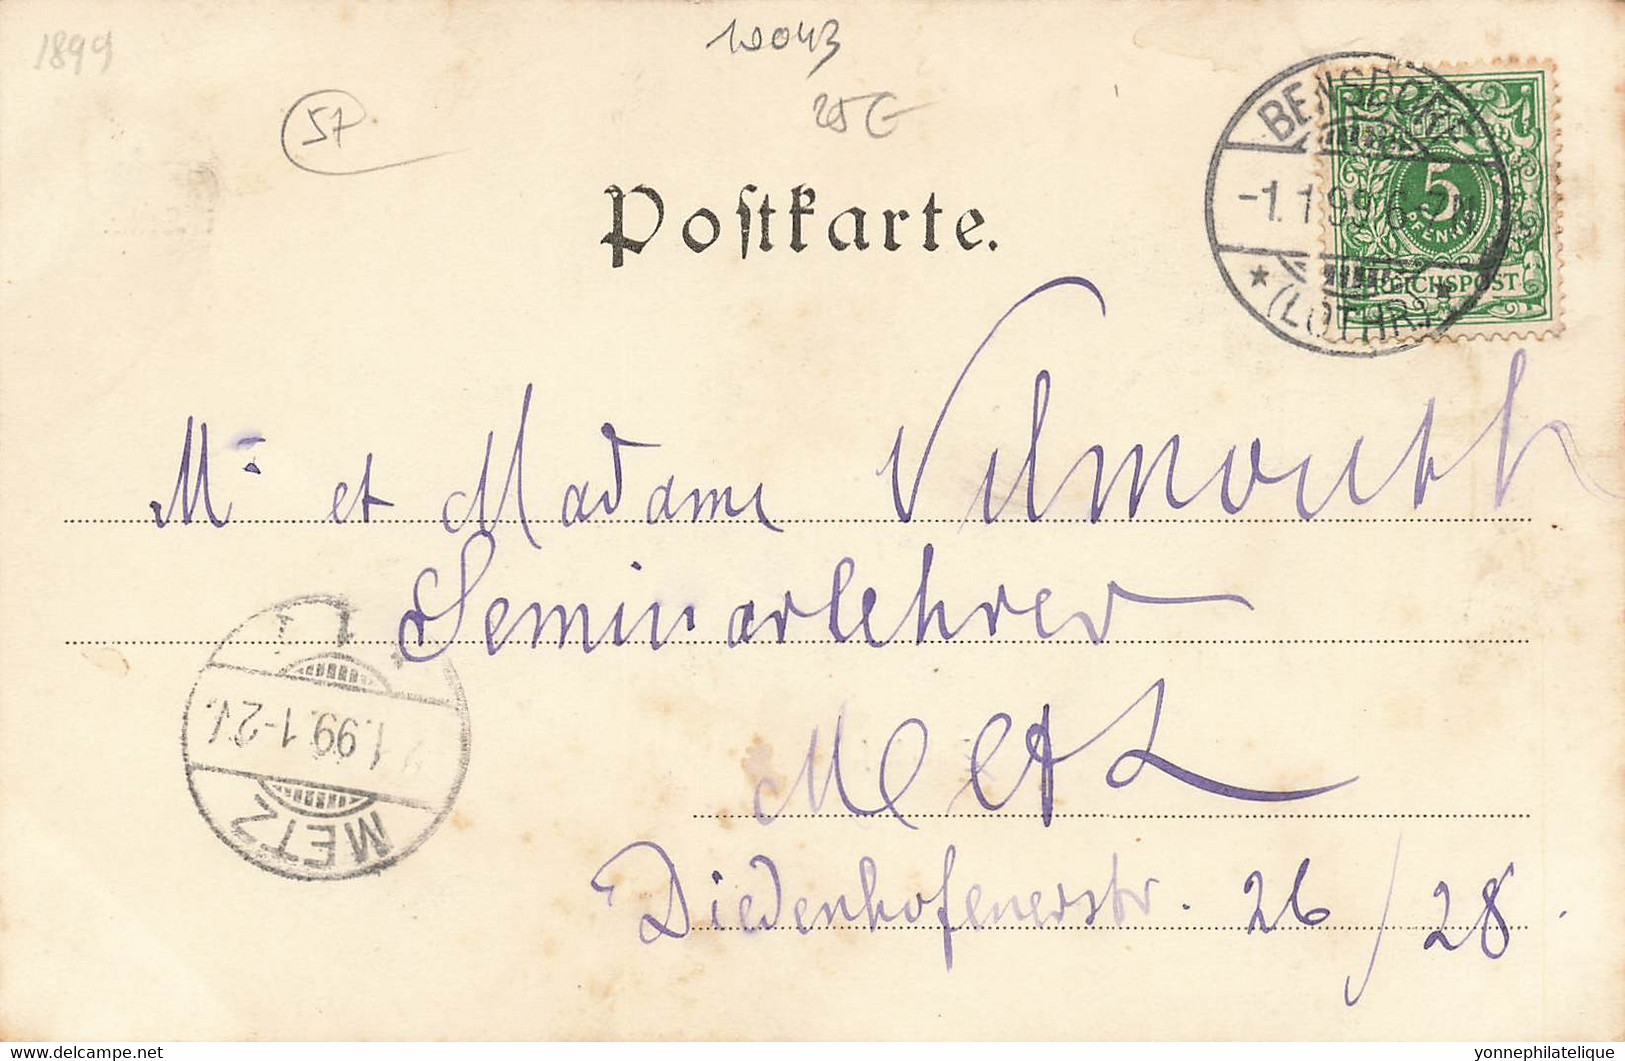 1899
10043
57
25€
Postkarte.
BENSDORF
-1.1.99.6-7N
(LOTHR)
5
PFENNIG
REICHSPOST
Mr et Madame Vilmouth
Seminarlehrer
Metz
Diedenhofenerstr. 26/28.
1.99.1-2V.
METZ
yonnephilatelie | delcampe.net